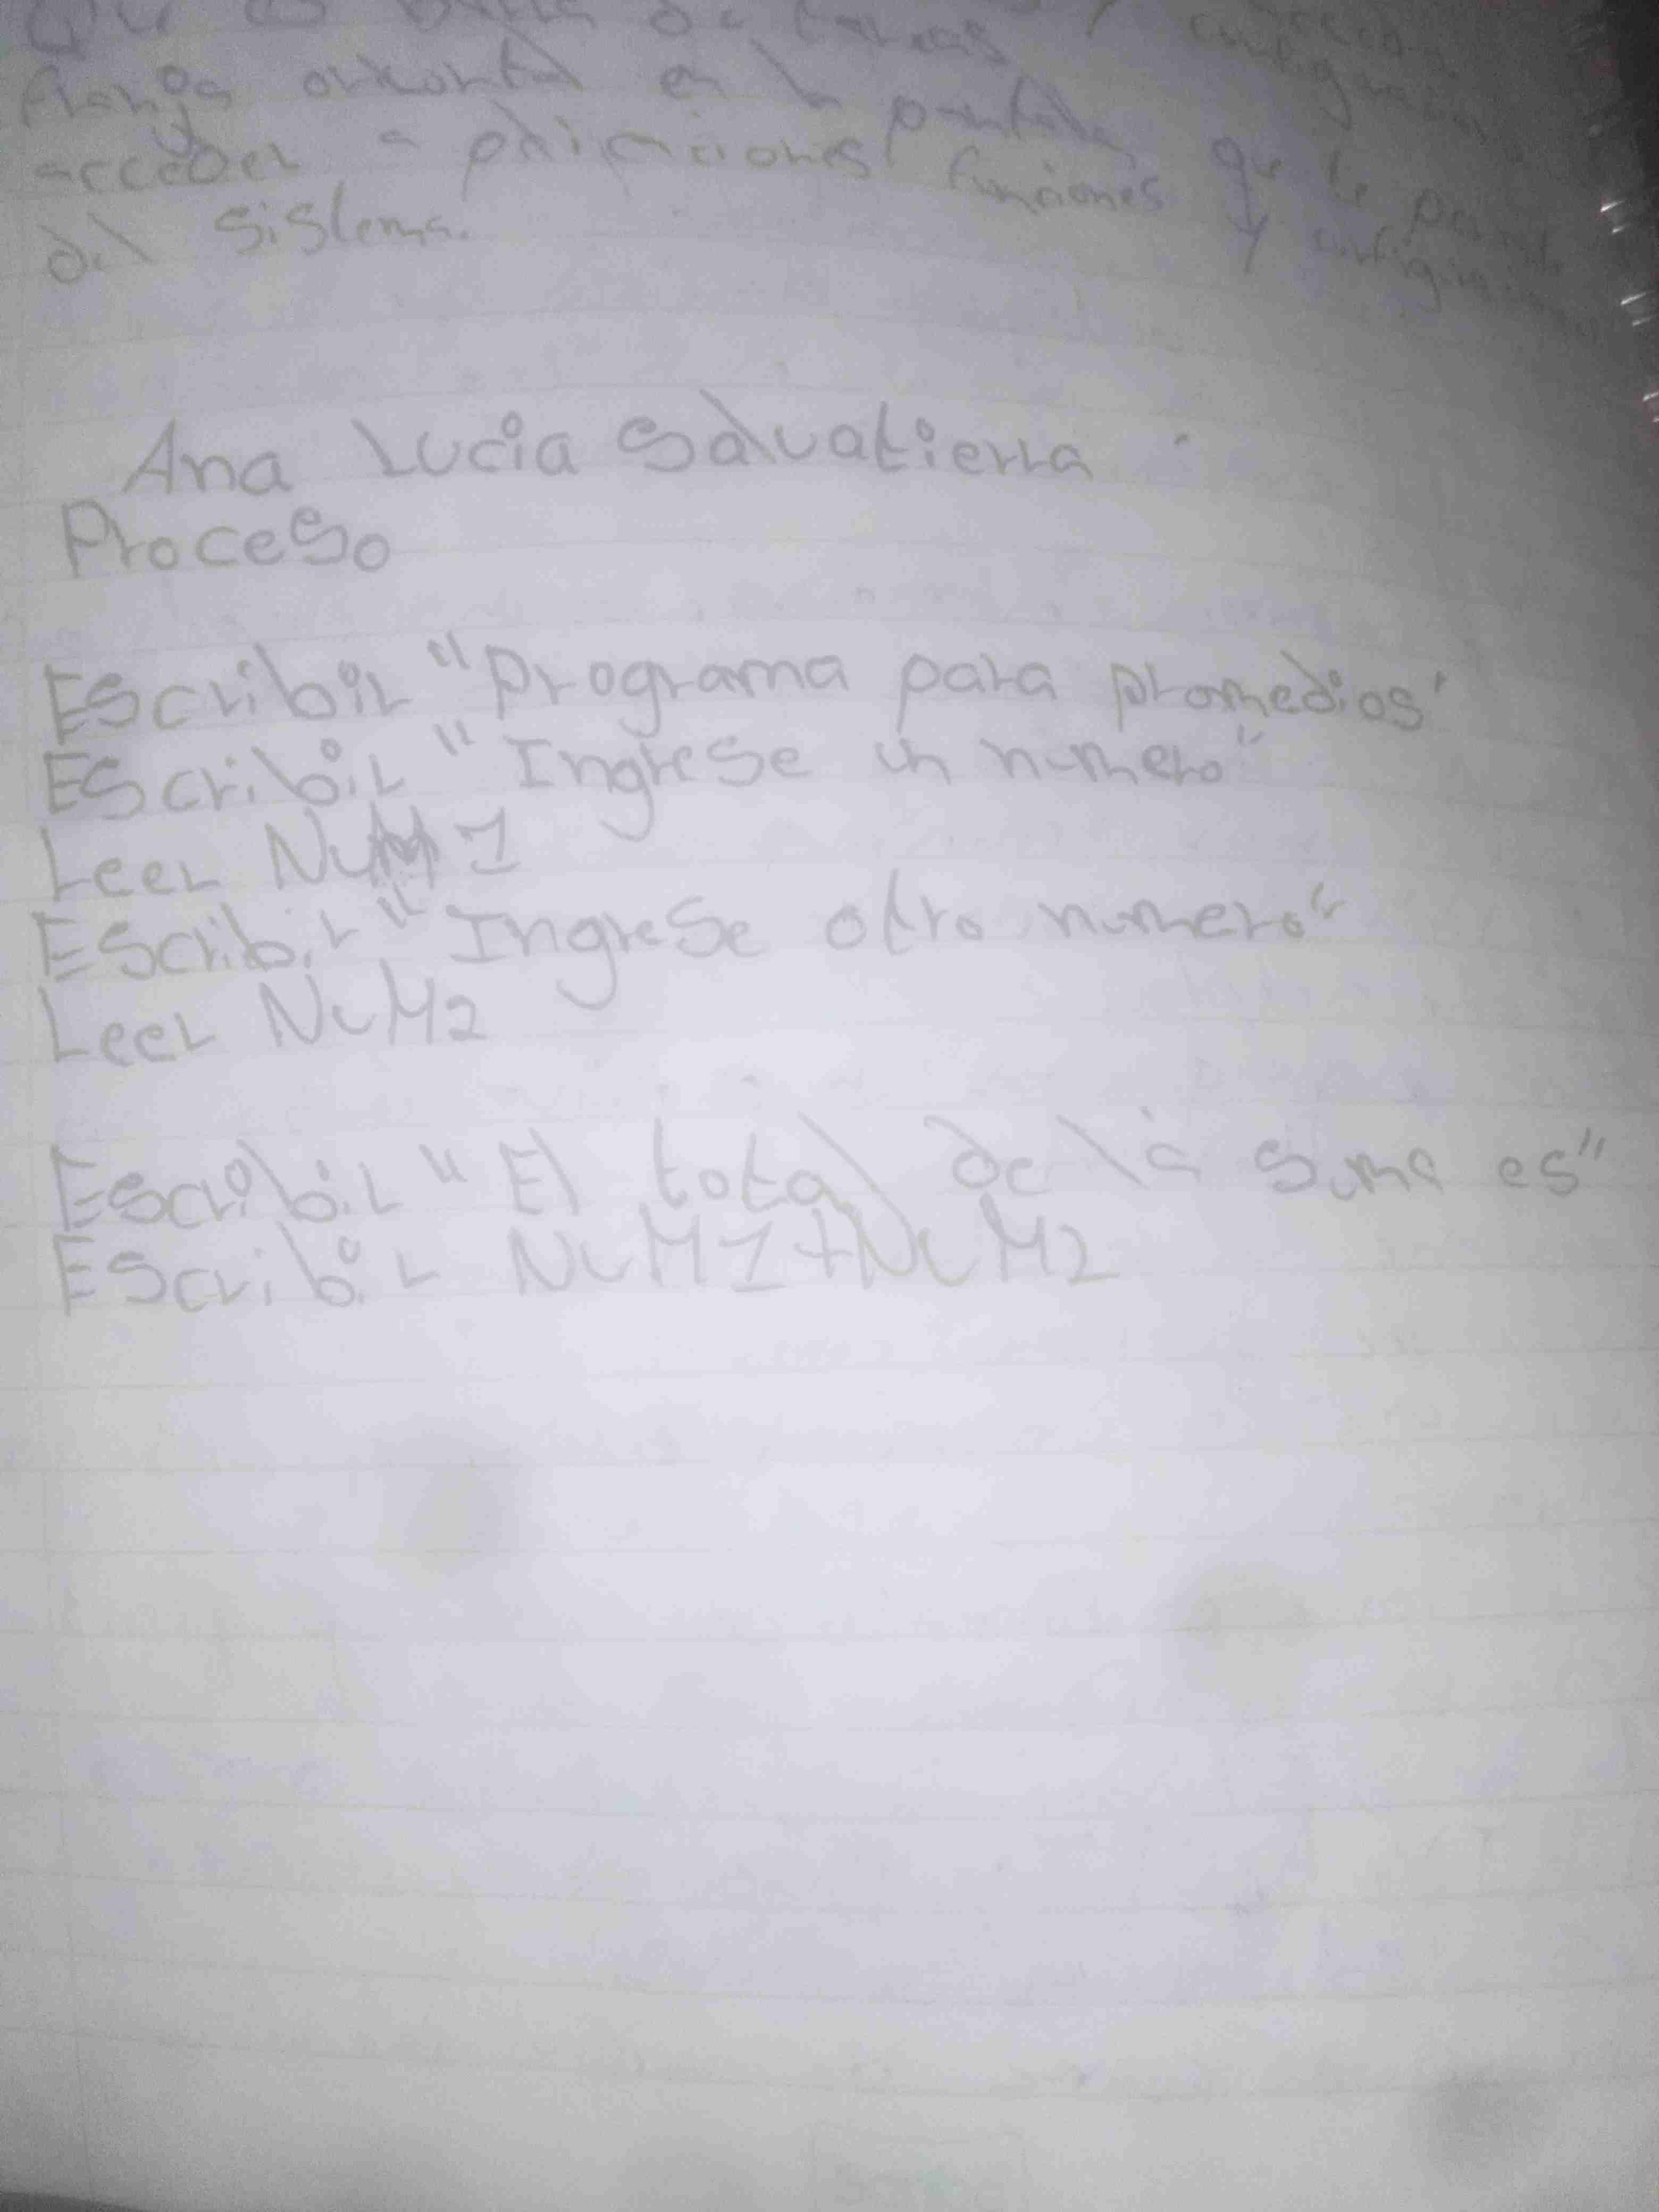 de tareas
franja orizontal en la pantalla que te permite
acceder a funciones y
del sistema.
Ana Lucia Salvatierra
Proceso
Escribir "Programa para promedios"
Escribir "Ingrese un numero"
Leer NuM1
Escribir "Ingrese otro numero"
Leer NuM2
Escribir "El total de la suma es"
Escribir NuM1+NuM2